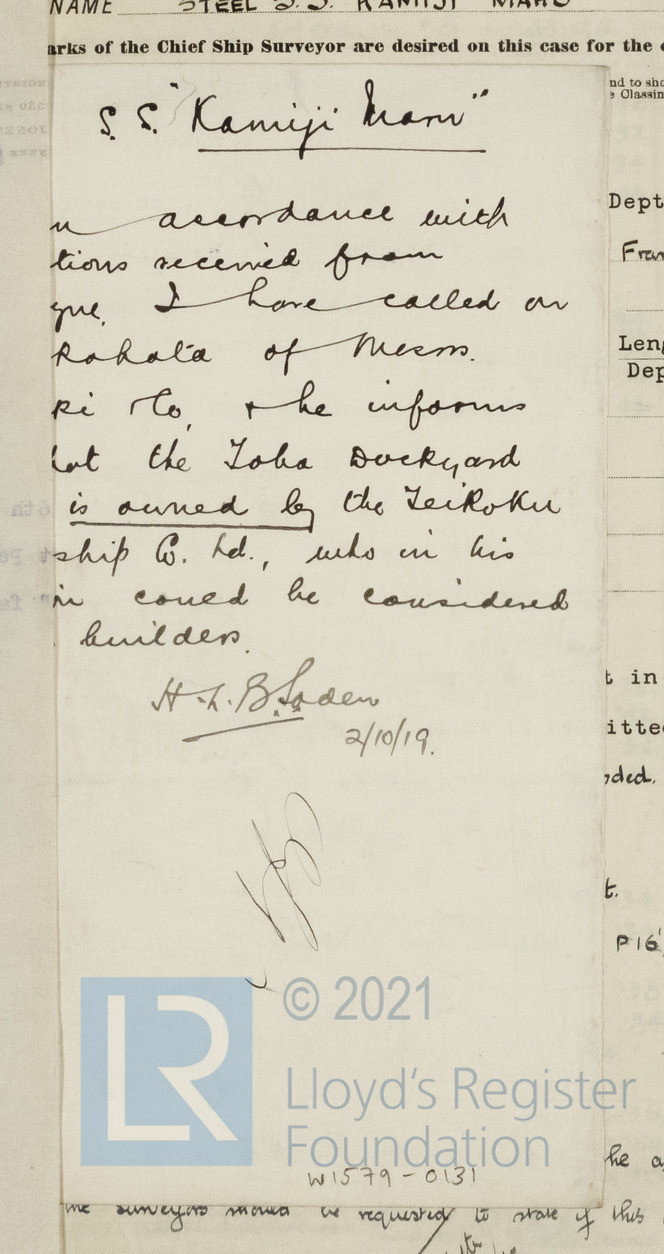 NAME STEEL S.S. KAMIJI MARU
arks of the Chief Ship Surveyor are desired on this case for the
nd to sho
Classin
S.S. "Kamiji Maru"
n accordance with
tions received from
gue, I have called on
kahata of Messrs.
ki & Co, & he informs
hat the Toba Dockyard
is owned by the Teikoku
ship Co. Ld., who in his
in could be considered
builders.
H. L. B. Soden
2/10/19.
Dept
Fram
Leng
Dep
t in
itte
ded.
t.
P16'
he a
© 2021
LR
Lloyd's Register
Foundation
W1579-0131
the surveyors should be requested to state if this